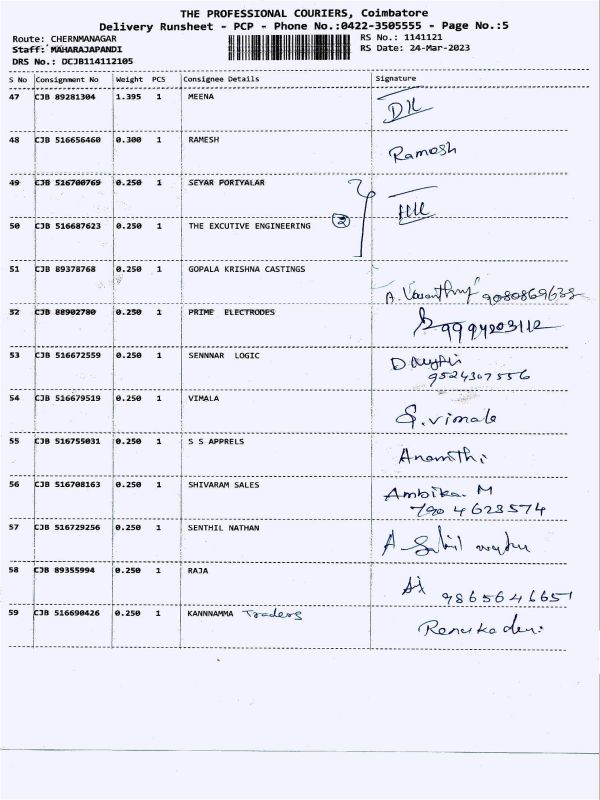 THE PROFESSIONAL COURIERS, Coimbatore
Delivery Runsheet - PCP - Phone No.:0422-3505555 - Page No.:5
Route: CHERNMANAGAR RS No.: 1141121
Staff: MAHARAJAPANDI RS Date: 24-Mar-2023
DRS No.: DCJB114112105
S No Consignment No Weight PCS Consignee Details Signature
47 CJB 89281304 1.395 1 MEENA
48 CJB 516656460 0.300 1 RAMESH Ramesh
49 CJB 516700769 0.250 1 SEYAR PORIYALAR
50 CJB 516687623 0.250 1 THE EXCUTIVE ENGINEERING 2
51 CJB 89378768 0.250 1 GOPALA KRISHNA CASTINGS
52 CJB 88902780 0.250 1 PRIME ELECTRODES
53 CJB 516672559 0.250 1 SENNNAR LOGIC
9524307556
54 CJB 516679519 0.250 1 VIMALA S.vimala
55 CJB 516755031 0.250 1 S S APPRELS
56 CJB 516708163 0.250 1 SHIVARAM SALES Ambika. M
7904623574
57 CJB 516729256 0.250 1 SENTHIL NATHAN
58 CJB 89355994 0.250 1 RAJA 9865646651
59 CJB 516690426 0.250 1 KANNNAMMA Traders Renukadevi